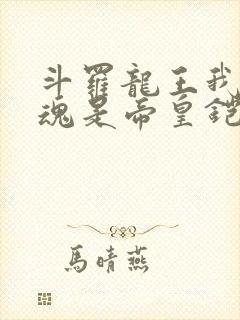 斗羅龍王我
魂是帝皇鎧
馬晴燕